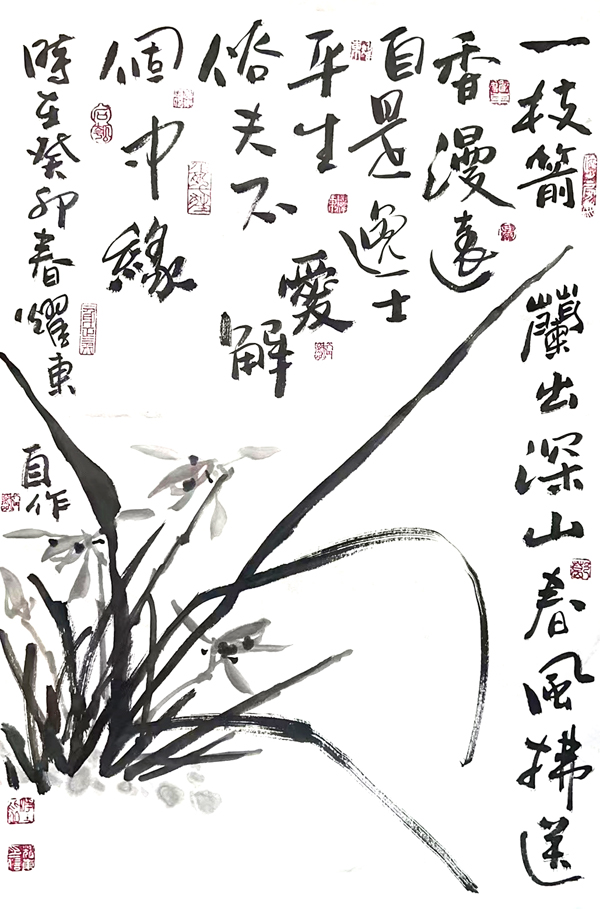 一枝箭蘭出深山春風拂送
香漫遠
自是逸士
平生愛
俗夫不解
個中緣
時在癸卯春耀東自作